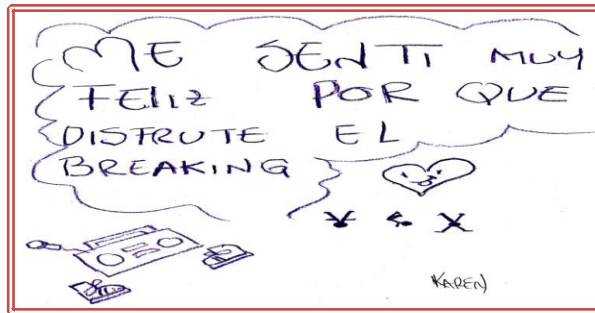 ME SENTI MUY
FELIZ POR QUE
DISFRUTE EL
BREAKING
KAREN